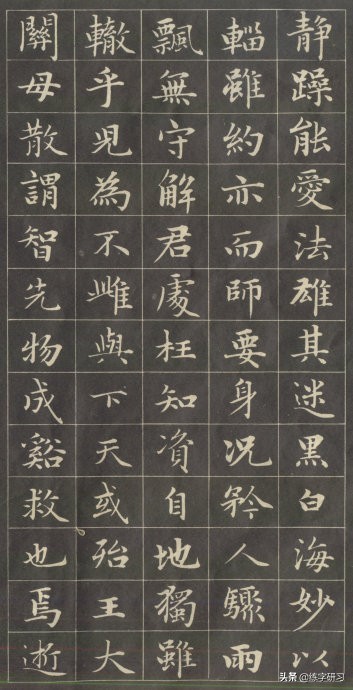 静躁能愛法雄其迷黑白海妙以
輜雖約亦而師要身况矜人驟雨
飄無守解君處枉知資自地獨雖
轍乎児為不雌與下天或殆王大
關母散謂智先物成谿救也焉逝
头条 @练字研习